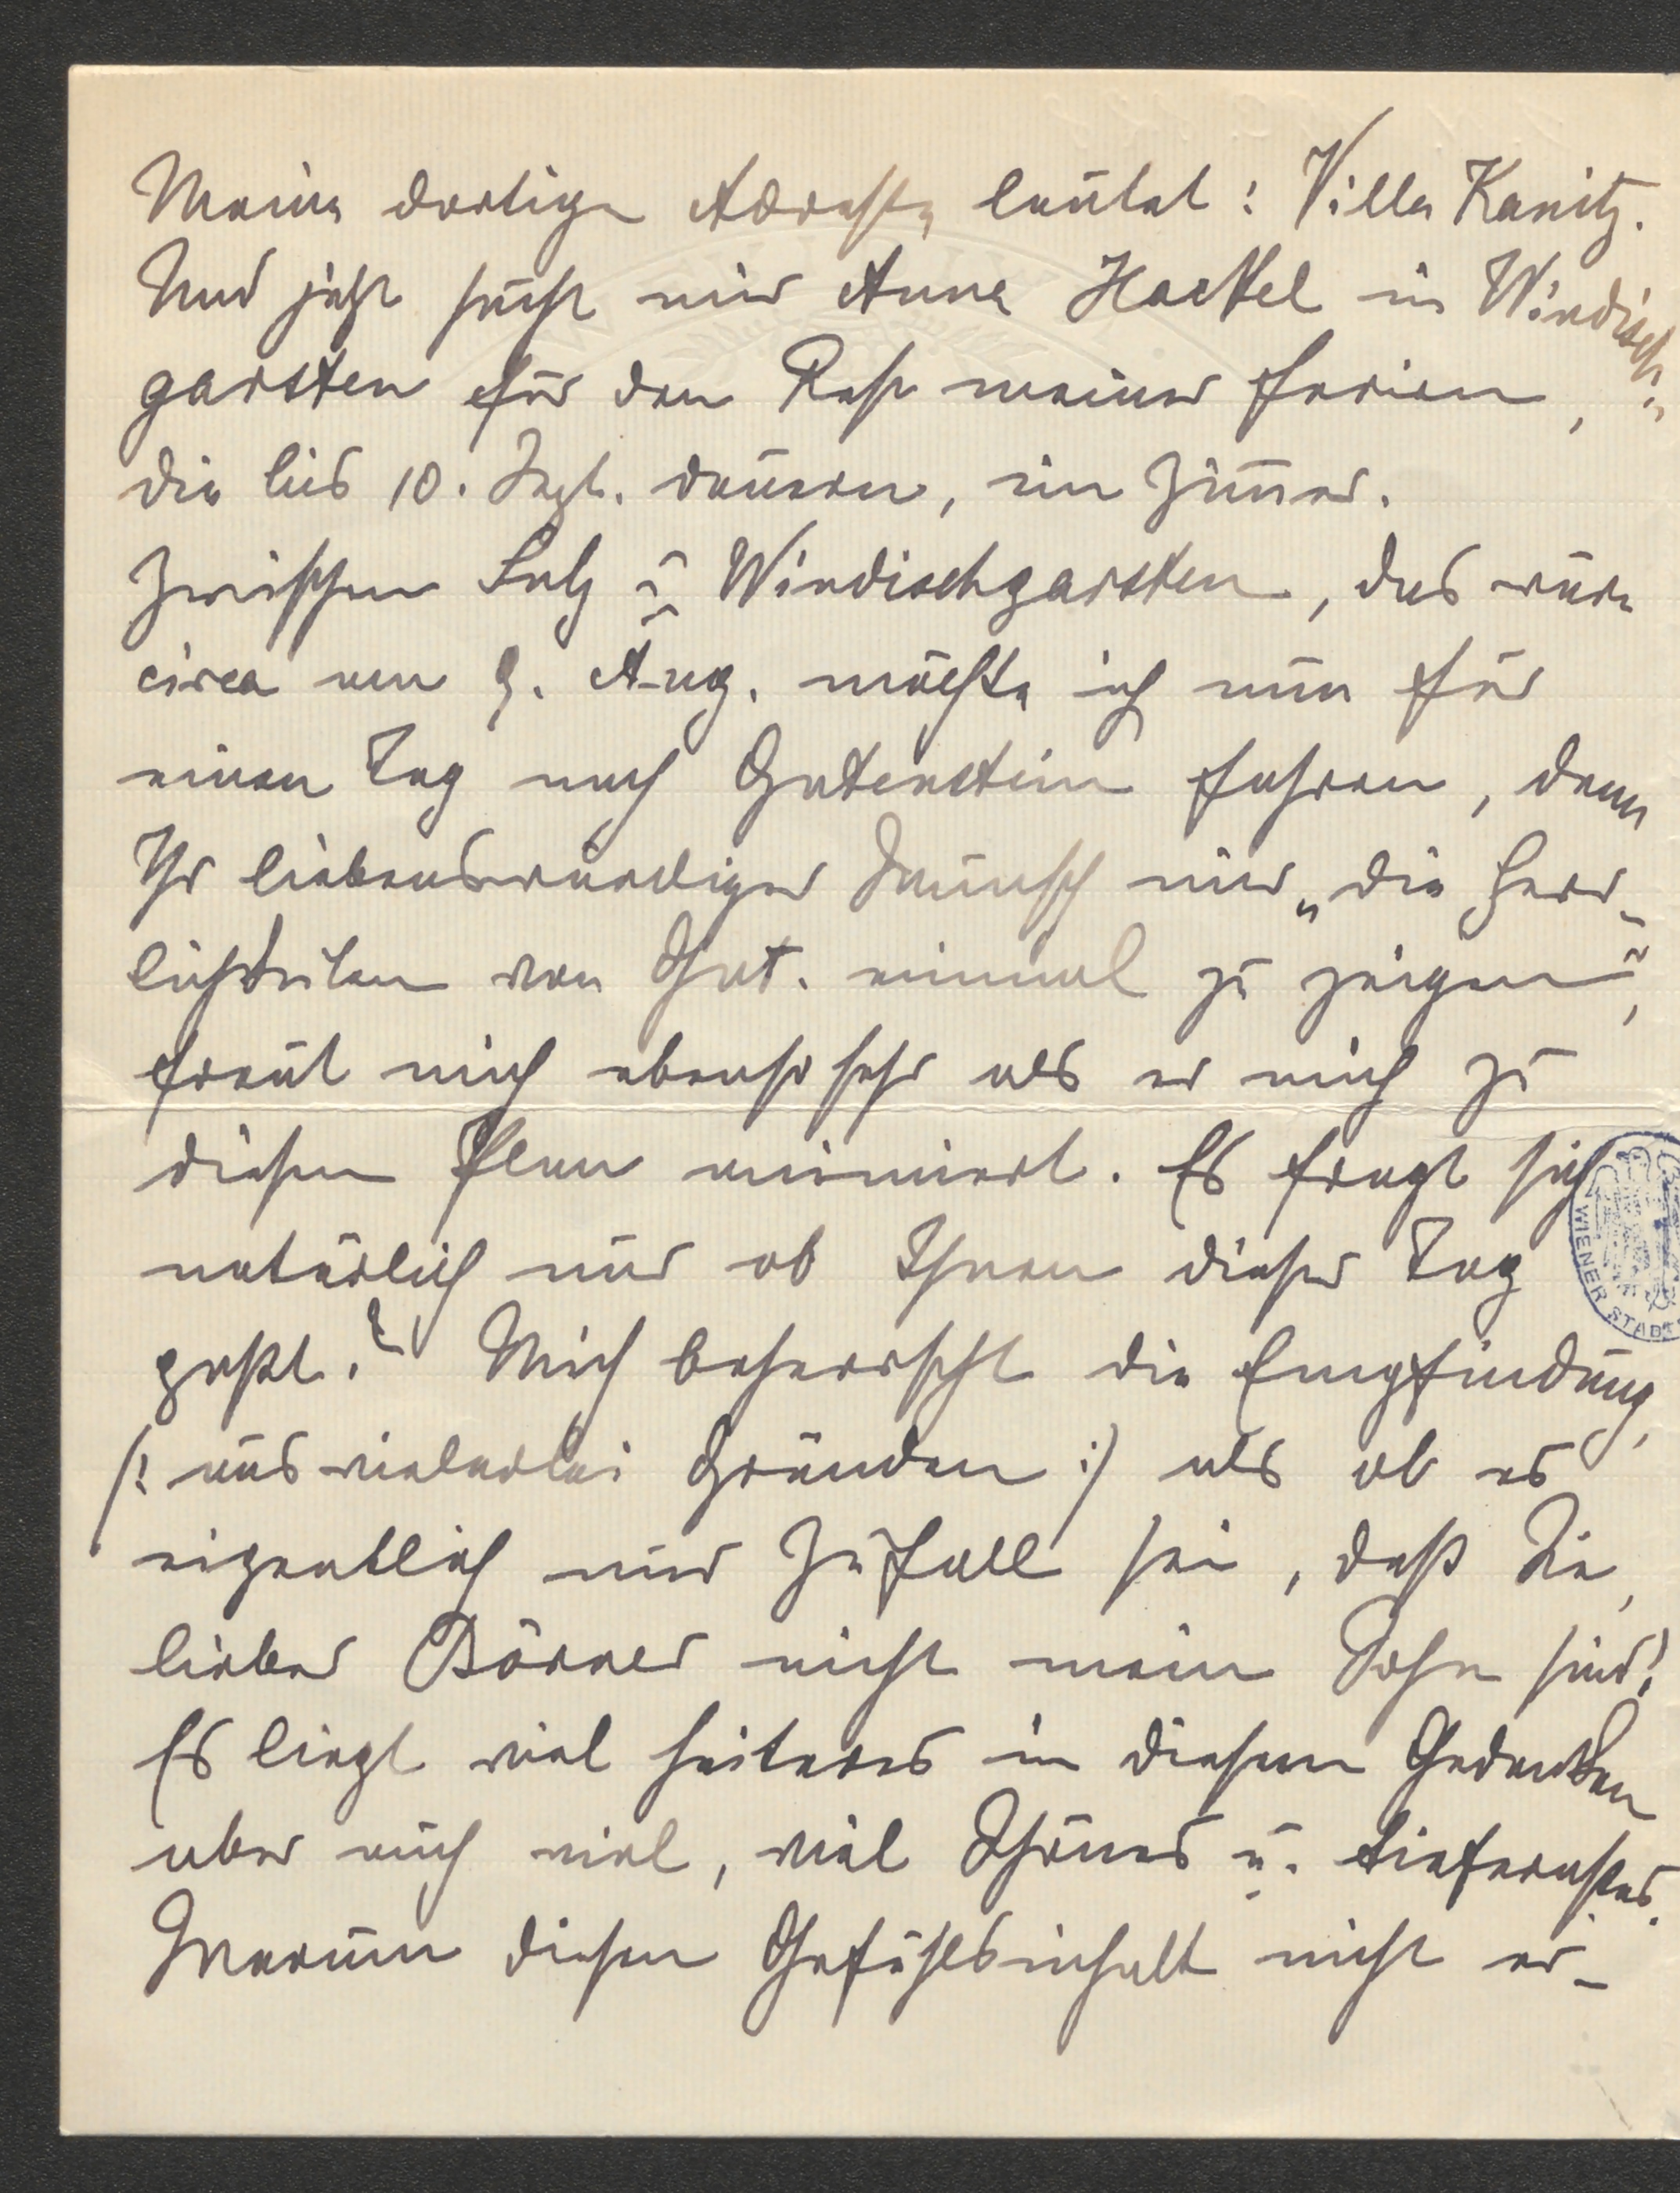 Meine dortige Adresse lautet: Villa Kanitz.
Und jetzt sucht mir Anna Hackel in Windisch-
garsten für den Rest meiner Ferien,
die bis 10. Sept. dauern, ein Zim̄er.
Zwischen Sulz u Windischgarsten, das wäre
circa am 9. Aug. möchte ich nun für
einen Tag nach Gutenstein fahren, denn
Ihr liebenswürdiger Wunsch mir „die Herr-
lichkeiten von Gut. einmal zu zeigen“,
freut mich ebenso sehr als er mich zu
diesem Plan animiert. Es fragt sich
natürlich nur ob Ihnen dieser Tag
paßt.? Mich beherrscht die Empfindung,
/: aus vielerlei Gründen :/ als ob es
eigentlich nur Zufall sei, daß Sie,
lieber Börner nicht mein Sohn sind!
Es liegt viel heiteres in diesem Gedanken
aber auch viel, viel Schönes u. tiefernstes.
Warum diesen Gefühlsinhalt nicht er-
WIENER STADT